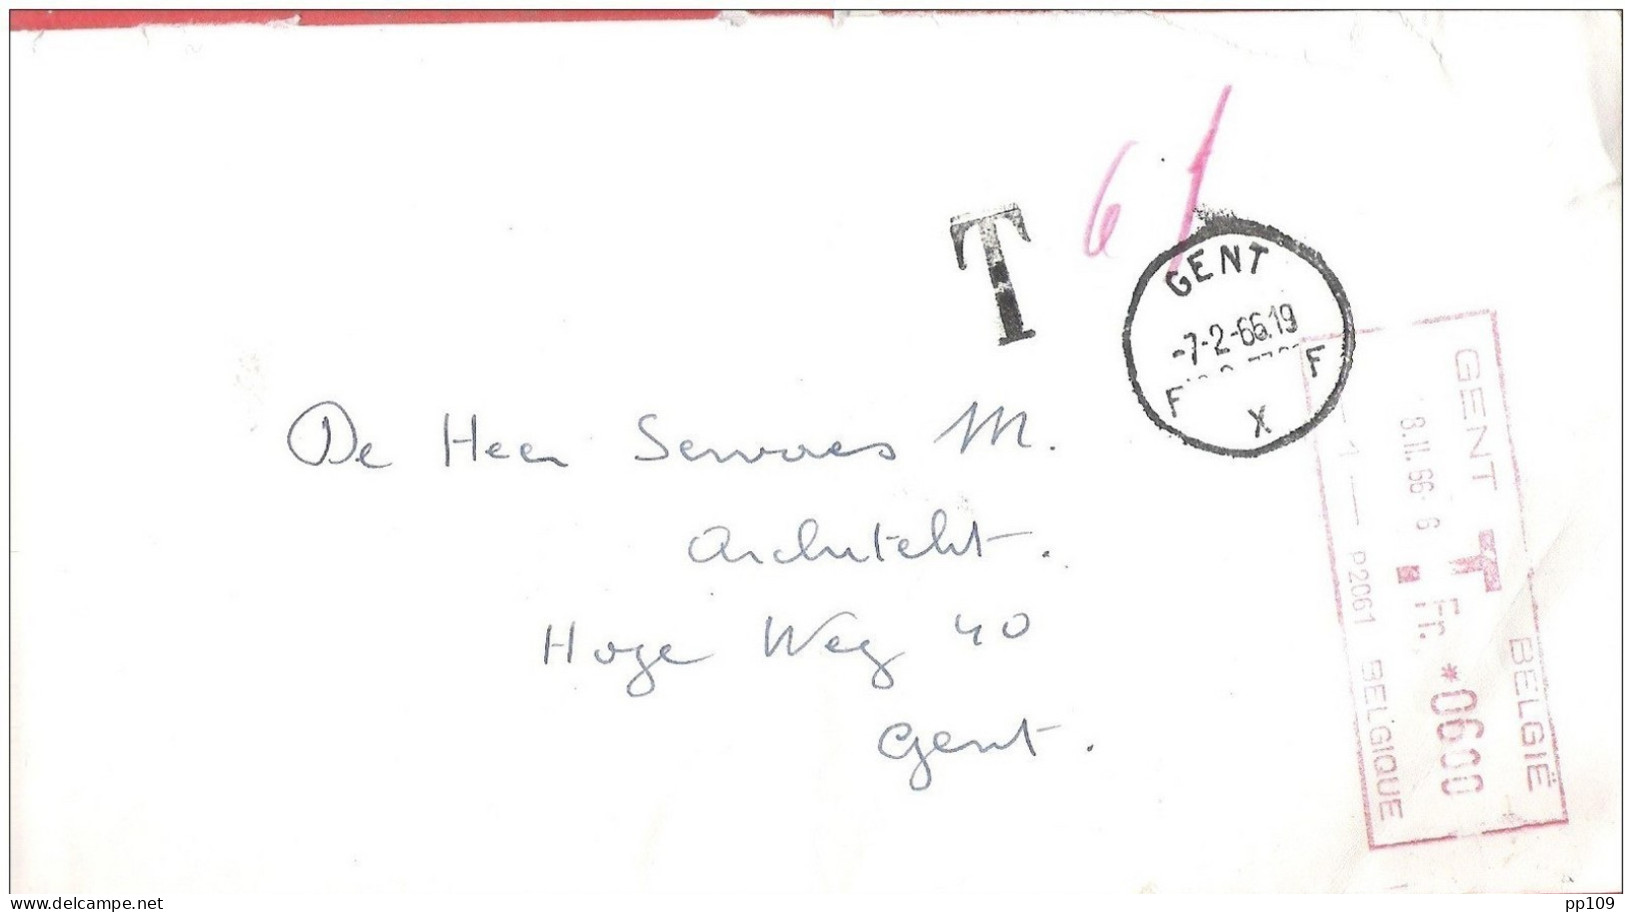 6 f
T
GENT
-7-2-66.19
F F
X
De Heer Servaes M.
Architekt.
Hoge Weg 40
Gent.
GENT T BELGIË
8.II.66-6 Fr. *0600
1 — P2061 BELGIQUE
delcampe.net
pp109